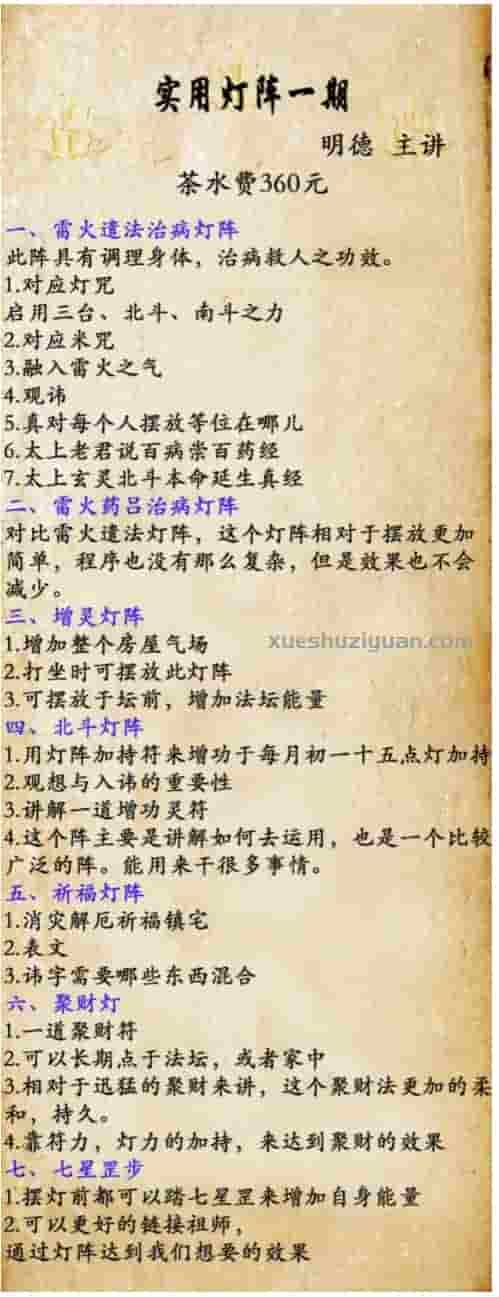 实用灯阵一期
明德 主讲
茶水费360元
一、雷火遣法治病灯阵
此阵具有调理身体，治病救人之功效。
1.对应灯咒
启用三台、北斗、南斗之力
2.对应米咒
3.融入雷火之气
4.观讳
5.真对每个人摆放等位在哪儿
6.太上老君说百病崇百药经
7.太上玄灵北斗本命延生真经
二、雷火药吕治病灯阵
对比雷火遣法灯阵，这个灯阵相对于摆放更加
简单，程序也没有那么复杂，但是效果也不会
减少。
三、增灵灯阵
1.增加整个房屋气场
xueshuziyuan.com
2.打坐时可摆放此灯阵
3.可摆放于坛前，增加法坛能量
四、北斗灯阵
1.用灯阵加持符来增功于每月初一十五点灯加持
2.观想与入讳的重要性
3.讲解一道增功灵符
4.这个阵主要是讲解如何去运用，也是一个比较
广泛的阵。能用来干很多事情。
五、祈福灯阵
1.消灾解厄祈福镇宅
2.表文
3.讳字需要哪些东西混合
六、聚财灯
1.一道聚财符
2.可以长期点于法坛，或者家中
3.相对于迅猛的聚财来讲，这个聚财法更加的柔
和，持久。
4.靠符力，灯力的加持，来达到聚财的效果
七、七星罡步
1.摆灯前都可以踏七星罡来增加自身能量
2.可以更好的链接祖师，
通过灯阵达到我们想要的效果